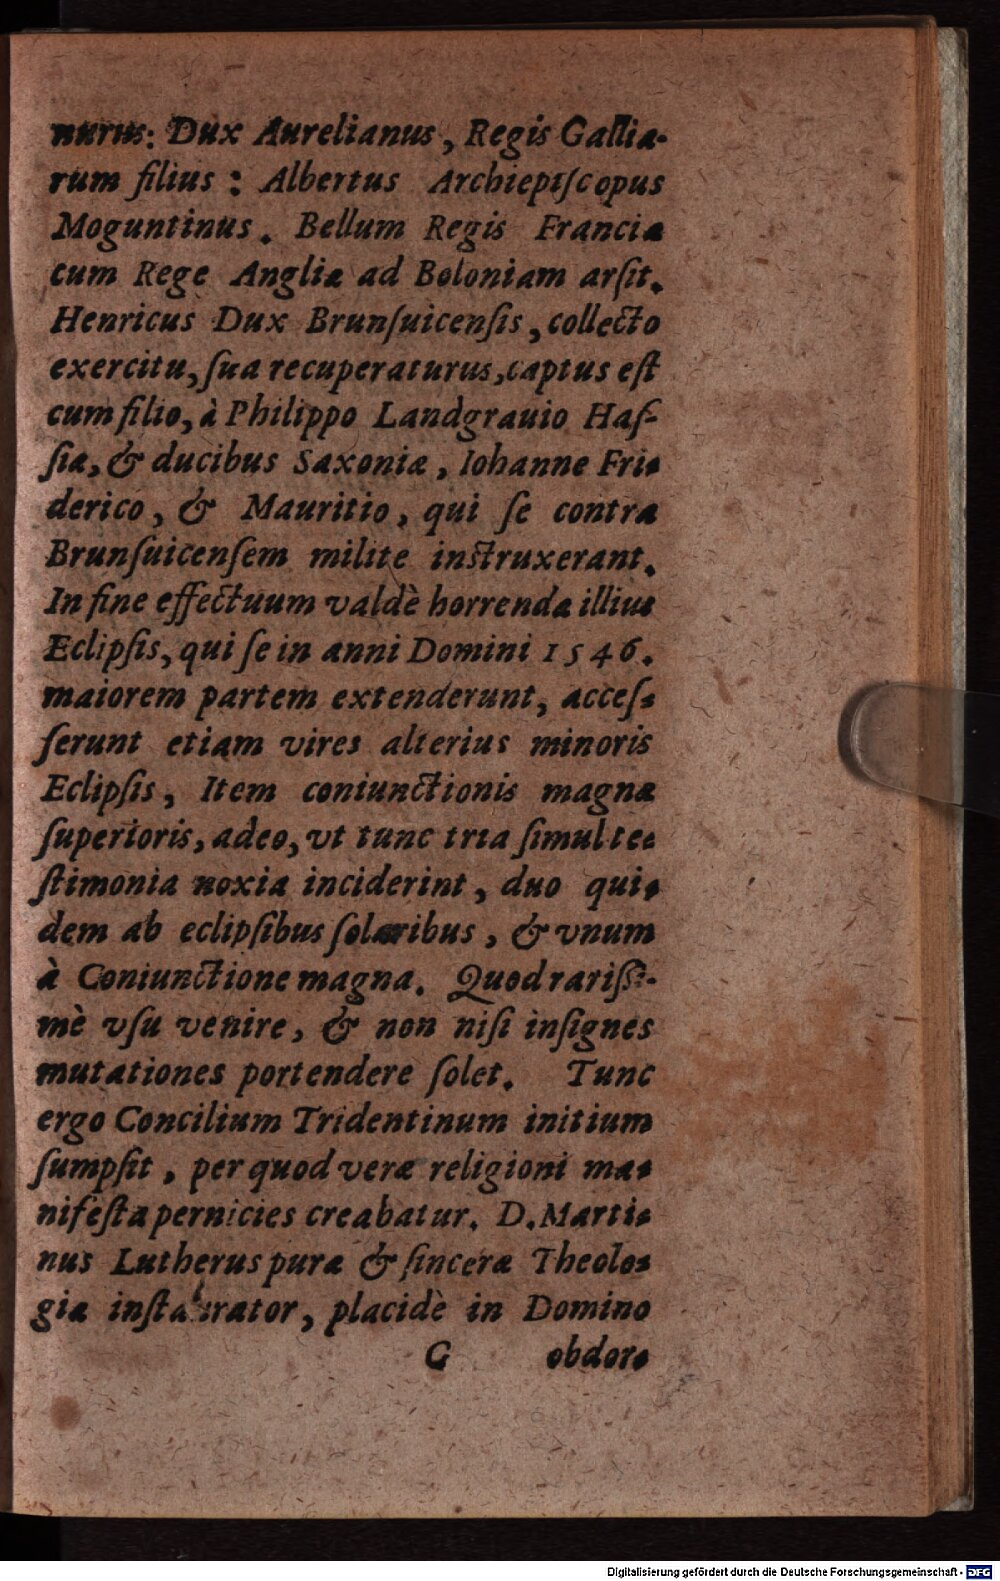 nurus: Dux Aurelianus, Regis Gallia-
rum filius : Albertus Archiepiſcopus
Moguntinus. Bellum Regis Franciæ
cum Rege Angliæ ad Boloniam arſit.
Henricus Dux Brunſuicenſis, collecto
exercitu, ſua recuperaturus, captus eſt
cum filio, à Philippo Landgrauio Haſ-
ſiæ, & ducibus Saxoniæ, Iohanne Fri-
derico, & Mauritio, qui ſe contra
Brunſuicenſem milite inſtruxerant.
In fine effectuum valdè horrenda illius
Eclipſis, qui ſe in anni Domini 1546.
maiorem partem extenderunt, acceſ-
ſerunt etiam vires alterius minoris
Eclipſis, Item coniunctionis magnæ
ſuperioris, adeo, vt tunc tria ſimul te-
ſtimonia noxia inciderint, duo qui-
dem ab eclipſibus ſolaribus, & vnum
à Coniunctione magna. Quod rariſſi-
mè vſu venire, & non niſi inſignes
mutationes portendere ſolet. Tunc
ergo Concilium Tridentinum initium
ſumpſit, per quod veræ religioni ma-
nifeſta pernicies creabatur. D. Marti-
nus Lutherus puræ & ſinceræ Theolo-
giæ inſtaurator, placidè in Domino
G obdor-
Digitalisierung gefördert durch die Deutsche Forschungsgemeinschaft - DFG